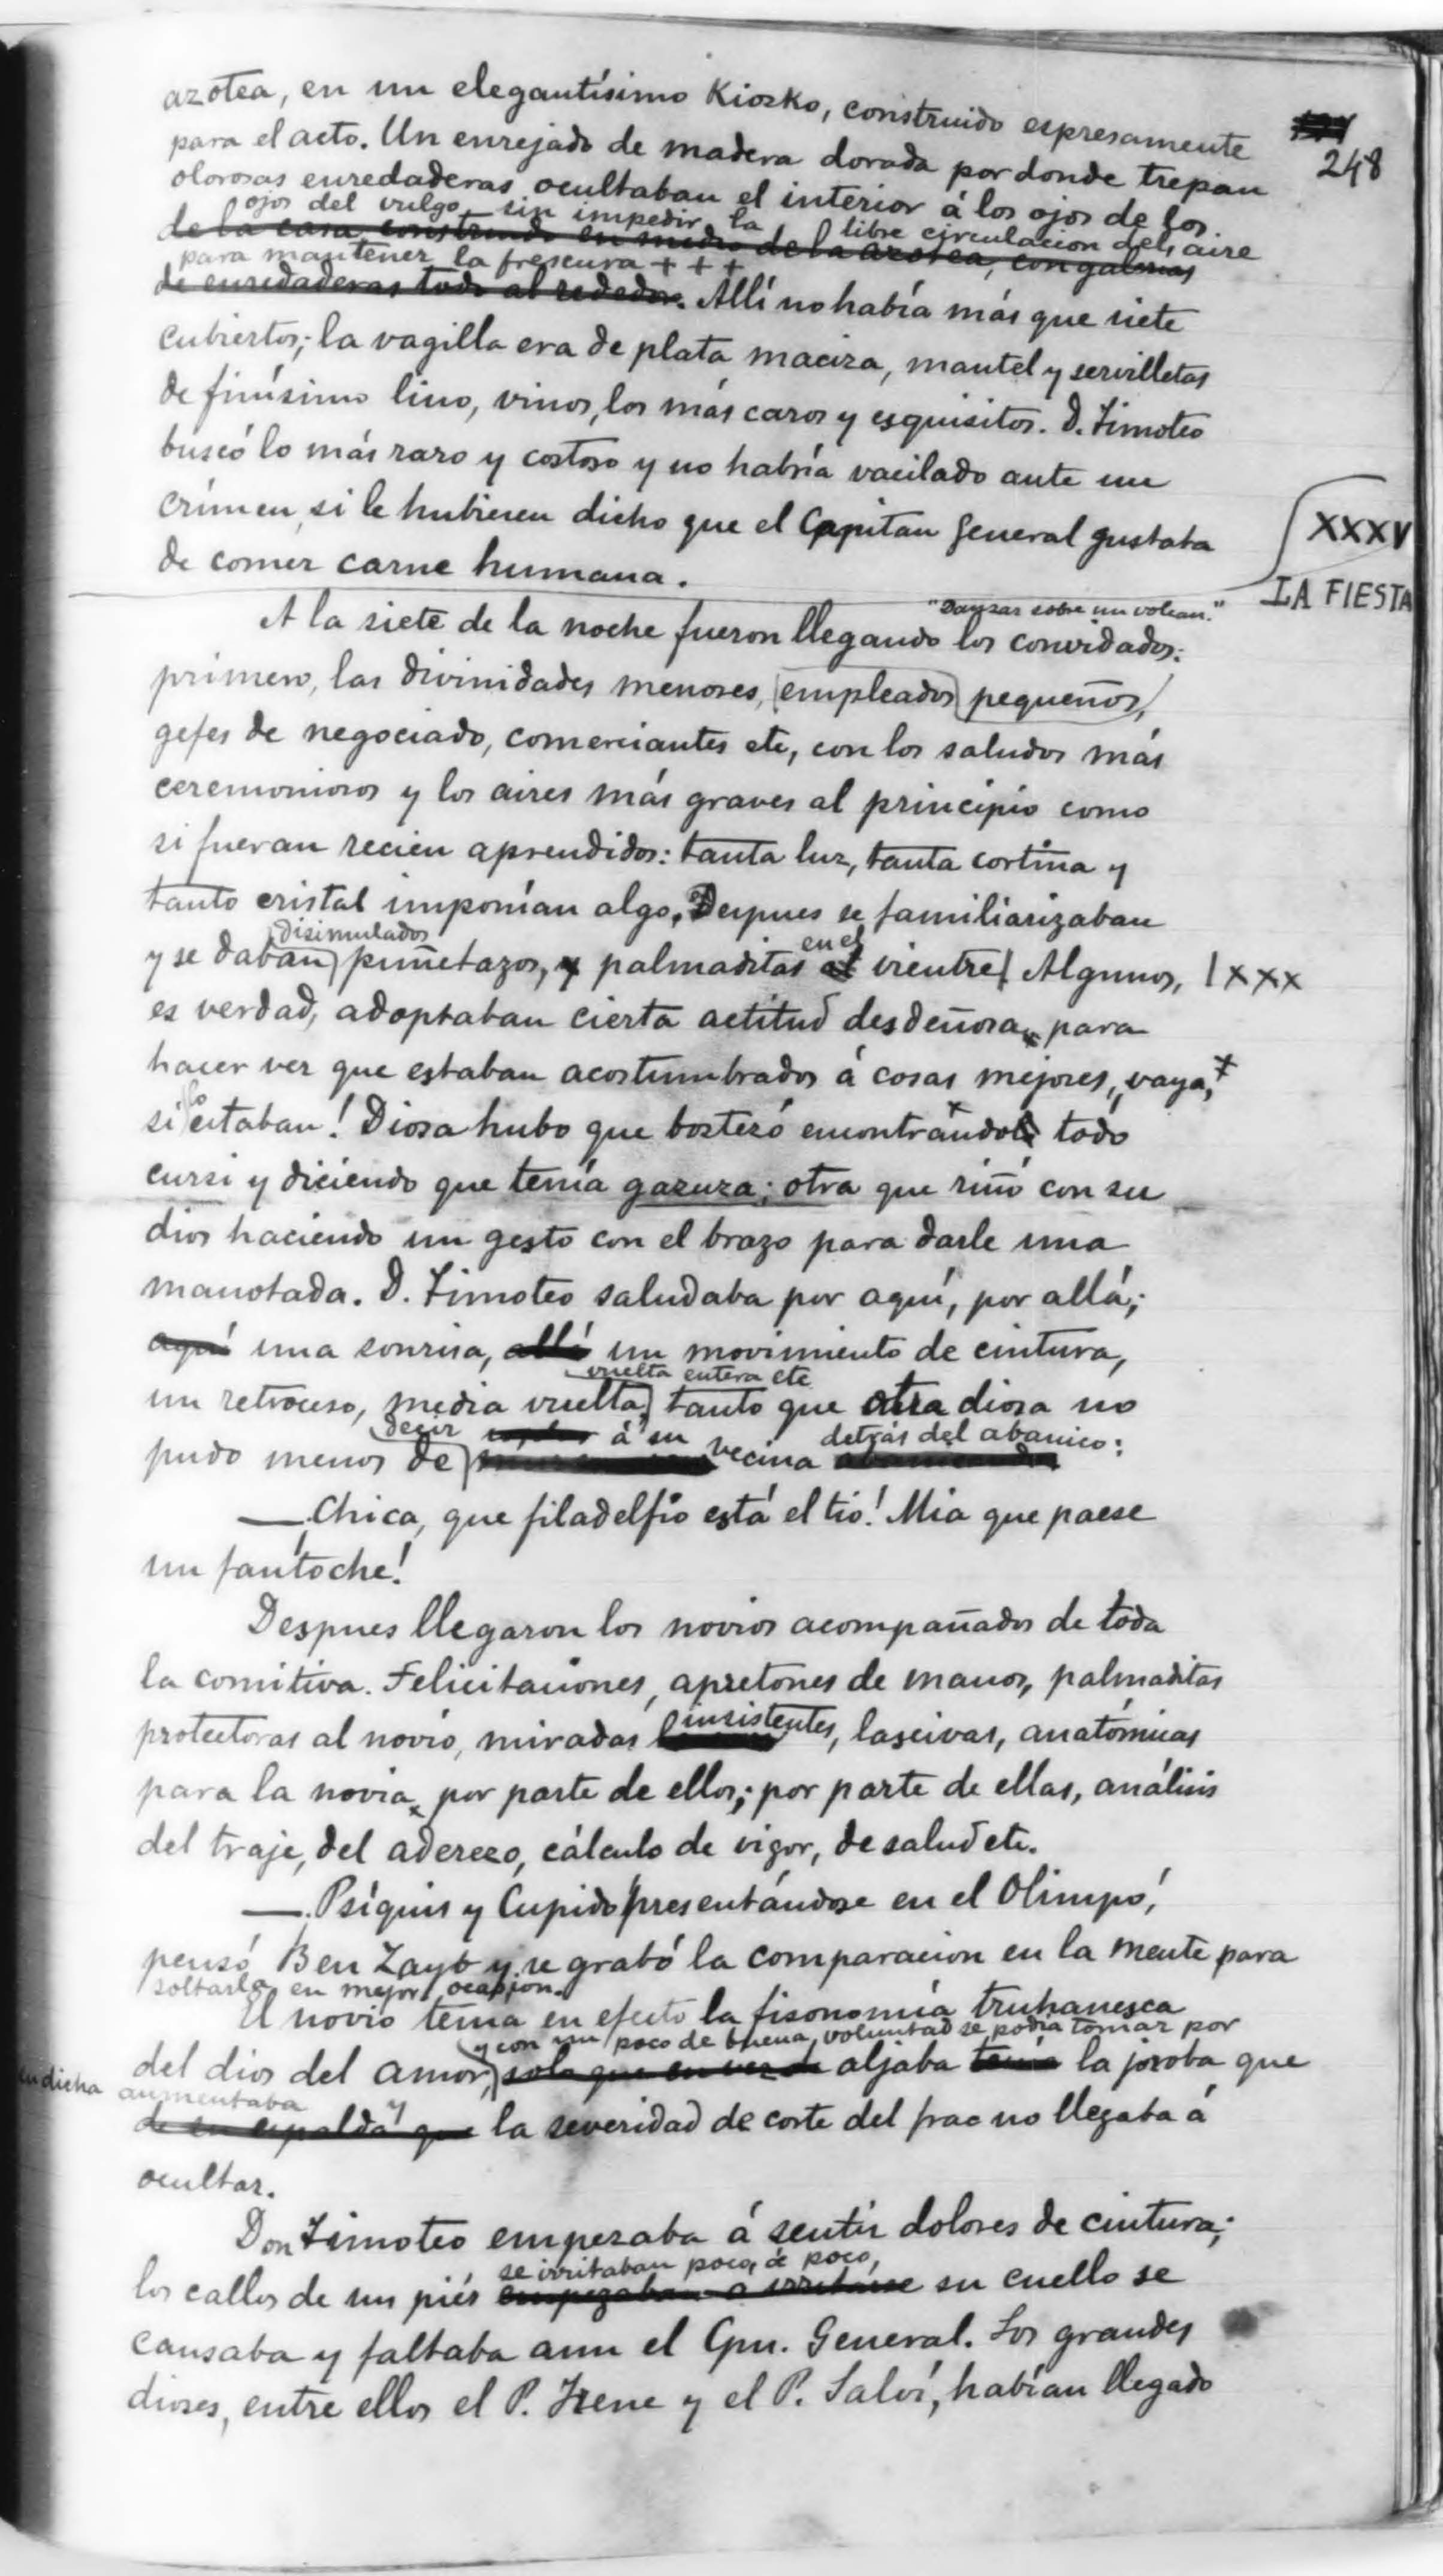 azotea, en un elegantísimo Kiozko, construido espresamente
248
para el acto. Un enrejado de madera dorada por donde trepan
olorosas enredaderas ocultaban el interior á los ojos de los
ojos del vulgo sin impedir la libre circulacion del aire
de la casa construido en medio de la azotea, con galerias
para mantener la frescura + + +
de enredaderas todo al rededor. Allí no había más que siete
cubiertos; la vagilla era de plata maciza, mantel y servilletas
de finísimo lino, vinos, los más caros y esquisitos. D. Timoteo
buscó lo más raro y costoso y no habría vacilado ante un
crímen si le hubiesen dicho que el Capitan General gustaba
de comer carne humana.
XXXV
LA FIESTA
"Danzar sobre un volcan."
A la siete de la noche fueron llegando los convidados:
primero, las divinidades menores, empleados pequeños,
gefes de negociado, comerciantes etc, con los saludos más
ceremoniosos y los aires más graves al principio como
si fueran recien aprendidos: tanta luz, tanta cortina y
tanto cristal imponían algo. Despues se familiarizaban
disimulados
en el
y se daban puñetazos, y palmaditas al vientre Algunos, xxx
es verdad, adoptaban cierta actitud desdeñosa para
hacer ver que estaban acostumbrados á cosas mejores, vaya,
lo
si estaban! Diosa hubo que bostezó encontrándolo todo
cursi y diciendo que tenía gazuza; otra que riñó con su
dios haciendo un gesto con el brazo para darle una
manotada. D. Timoteo saludaba por aquí, por allá;
aquí una sonrisa, allí un movimiento de cintura,
vuelta entera etc
un retroceso, media vuelta, tanto que otra diosa no
decir á su vecina detrás del abanico:
pudo menos de
—¡Chica, que filadelfio está el tio! Mia que paese
un fantoche!
Despues llegaron los novios acompañados de toda
la comitiva. Felicitaciones, apretones de manos, palmaditas
protectoras al novio, miradas insistentes, lascivas, anatómicas
para la novia por parte de ellos; por parte de ellas, análisis
del traje, del aderezo, cálculo de vigor, de salud etc.
—¡Psíquis y Cupido presentándose en el Olimpo!
pensó Ben Zayb y se grabó la comparacion en la mente para
soltarla en mejor ocasion.
El novio tenía en efecto la fisonomía truhanesca
y con un poco de buena voluntad se podía tomar por
del dios del amor, solo que en vez de aljaba tenía la joroba que
en dicha
aumentaba y
de su espalda que la severidad de corte del frac no llegaba á
ocultar.
Don Timoteo empezaba á sentir dolores de cintura;
se irritaban poco á poco,
los callos de sus piés empezaban a irritarse su cuello se
cansaba y faltaba aun el Cpn. General. Los grandes
dioses, entre ellos el P. Irene y el P. Salví, habían llegado